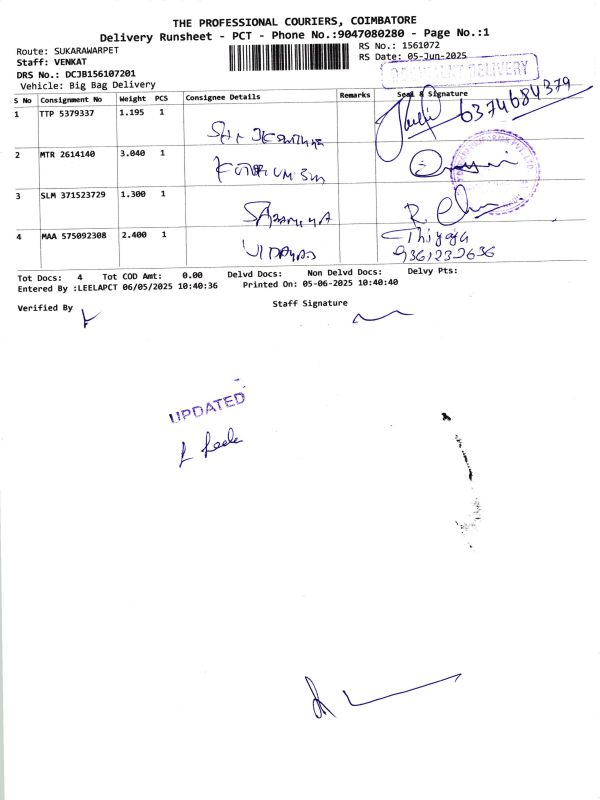 THE PROFESSIONAL COURIERS, COIMBATORE
Delivery Runsheet - PCT - Phone No.:9047080280 - Page No.:1
Route: SUKARAWARPET
RS No.: 1561072
Staff: VENKAT
RS Date: 05-Jun-2025
DRS No.: DCJB156107201
Vehicle: Big Bag Delivery
DELIVERY
S No Consignment No Weight PCS Consignee Details Remarks Seal & Signature
1 TTP 5379337 1.195 1
6374684379
2 MTR 2614140 3.040 1
3 SLM 371523729 1.300 1
4 MAA 575092308 2.400 1
Thiyagu
9361232636
Tot Docs: 4 Tot COD Amt: 0.00 Delvd Docs: Non Delvd Docs: Delvy Pts:
Entered By :LEELAPCT 06/05/2025 10:40:36 Printed On: 05-06-2025 10:40:40
Verified By Staff Signature
UPDATED